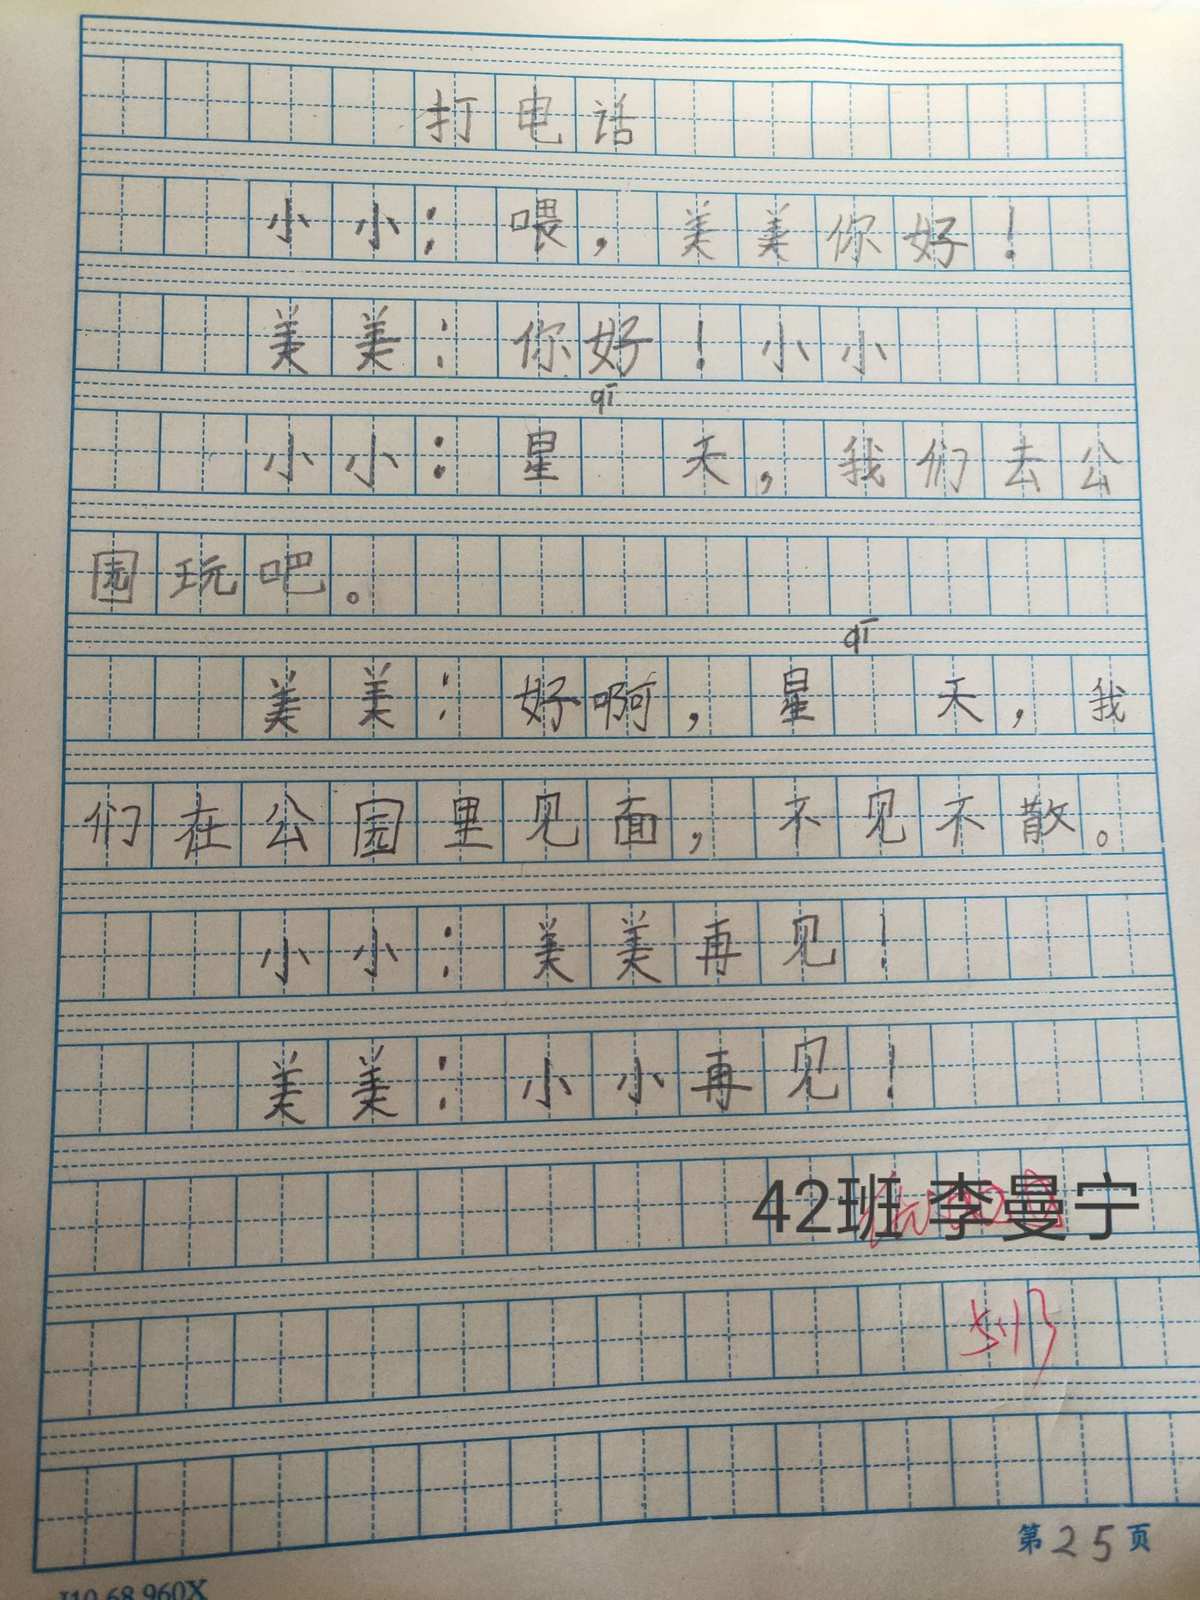 打电话
小小：喂，美美你好！
美美：你好！小小
qī
小小：星 天，我们去公
园玩吧。
qī
美美：好啊，星 天，我
们在公园里见面，不见不散。
小小：美美再见！
美美：小小再见！
42班 李曼宁
5.13
第25页